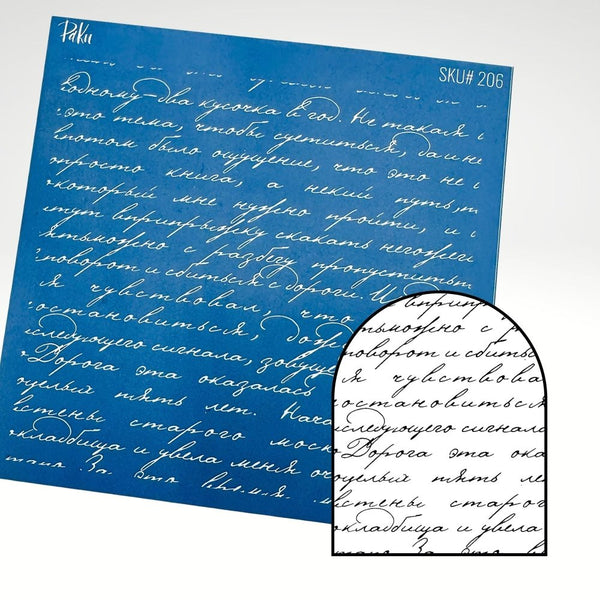 PdKu
SKU# 206
одному-два кусочка в год. Не такая
это тема, чтобы суетиться, да и не
потом было ощущение, что это не
просто книга, а некий путь,
который мне нужно пройти, и
тут вприпрыжку скакать
можно с разбегу пропустить
поворот и сбиться с дороги. И
я чувствовал, что
остановиться,
следующего сигнала, зовущ
Дорога эта оказалась
целый пять лет. Нача
стены старого моск
кладбища и увела меня
За это
вприпр
тьможно с р
поворот и сбить
я чувствова
остановиться
следующего сигнала
Дорога эта ока
целый пять ле
стены старог
кладбища и увела
За это